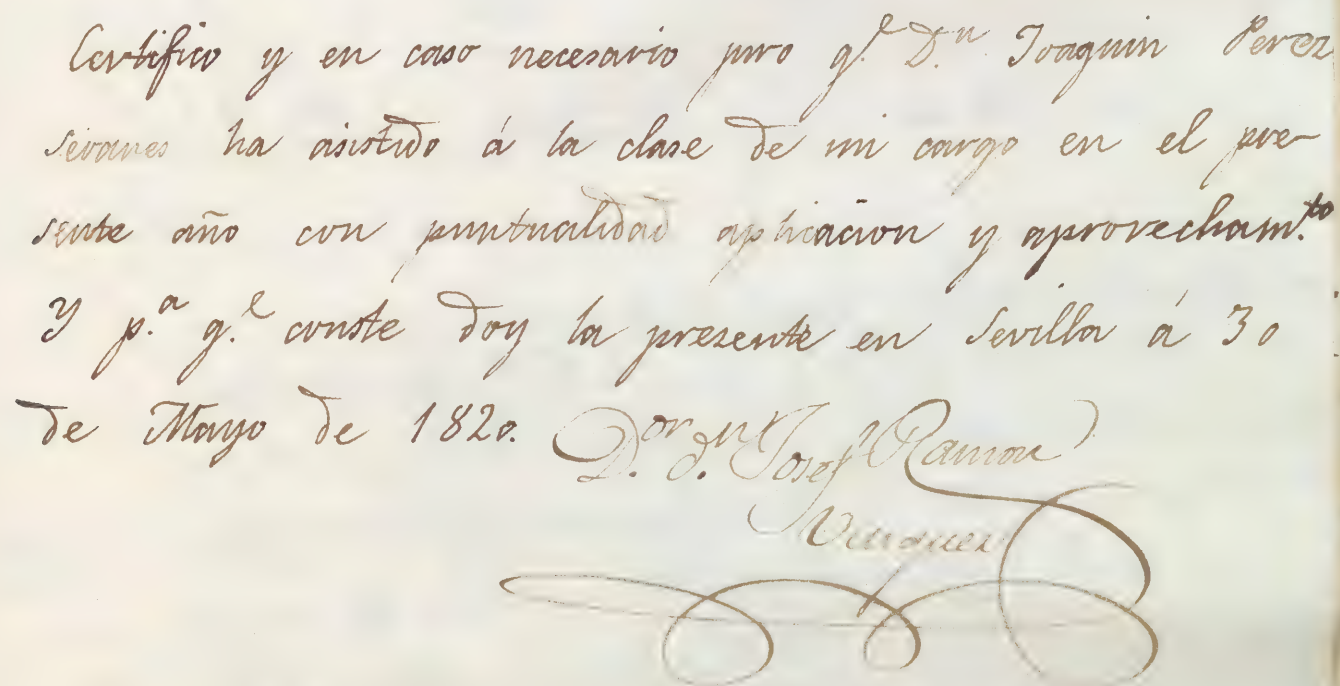 Certifico y en caso necesario juro q.e D.n Joaquin Perez
Seoanes ha asistido á la clase de mi cargo en el pre-
sente año con puntualidad aplicacion y aprovecham.to
Y p.a q.e conste doy la presente en Sevilla á 30
de Mayo de 1820. D.or d.n Josef Ramon
Vazquez